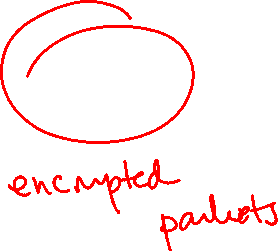 encrypted
packets